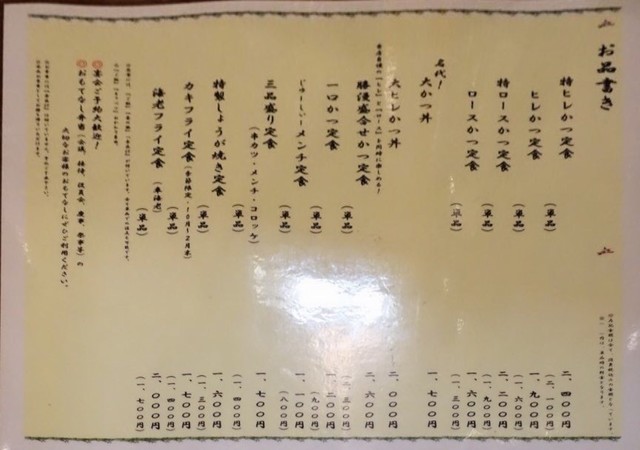 お品書き
特ヒレかつ定食 二、四〇〇円
（単品） （二、一〇〇円）
ヒレかつ定食 一、九〇〇円
（単品） （一、六〇〇円）
特ロースかつ定食 二、二〇〇円
（単品） （一、九〇〇円）
ロースかつ定食 一、六〇〇円
（単品） （一、三〇〇円）
名代！
大かつ丼 一、七〇〇円
大ヒレかつ丼 二、〇〇〇円
勝漫盛合せかつ定食 二、六〇〇円
（単品） （二、三〇〇円）
一口かつ定食 一、二〇〇円
（単品） （九〇〇円）
じゅーしぃーメンチ定食 一、一〇〇円
（単品） （八〇〇円）
三品盛り定食 一、七〇〇円
（串カツ・メンチ・コロッケ）
（単品） （一、四〇〇円）
特製しょうが焼き定食 一、六〇〇円
（単品） （一、三〇〇円）
カキフライ定食（季節限定・10月～12月末） 一、七〇〇円
（単品） （一、四〇〇円）
海老フライ定食（車海老） 二、〇〇〇円
（単品） （一、七〇〇円）
宴会ご予約大歓迎！
おもてなし弁当（会議、接待、役員会、慶事、祭事等）の
大切なお客様のおもてなしにぜひご利用ください。